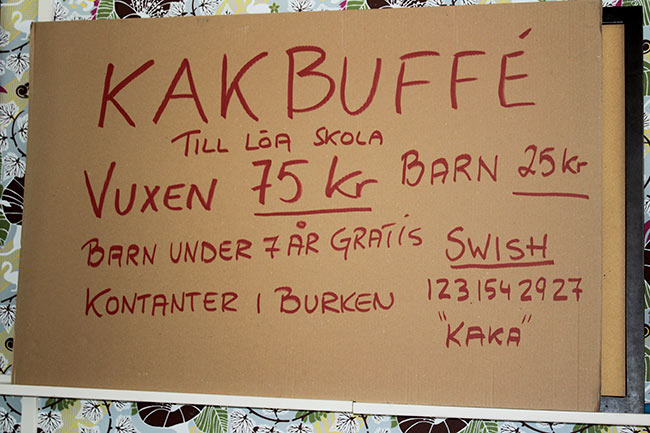 KAKBUFFÉ
TILL LÖA SKOLA
VUXEN 75 kr BARN 25 kr
BARN UNDER 7 ÅR GRATIS
KONTANTER I BURKEN
SWISH
123 154 29 27
"KAKA"